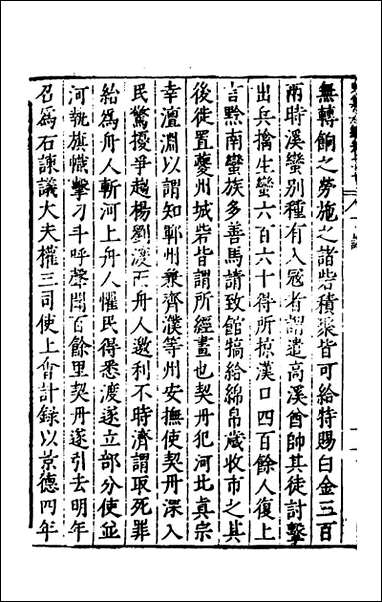 無轉餉之勞施之諸砦積粟皆可給特賜白金三百
兩時溪蠻别種有入寇者謂遣高溪酋帥其徒討擊
出兵擒生蠻六百六十得所掠漢口四百餘人復上
言黔南蠻族多善馬請致館犒給緡帛歲收市之其
後徒置夔州城砦皆謂所經畫也契丹犯河北眞宗
幸澶淵以謂知鄆州兼齊濮等州安撫使契丹深入
民驚擾爭趨楊劉渡而舟人邀利不時濟謂取死罪
紿爲舟人斬河上舟人懼民得悉渡遂立部分使並
河執旗幟擊刁斗呼聲聞百餘里契丹遂引去明年
召爲右諫議大夫權三司使上會計録以景德四年